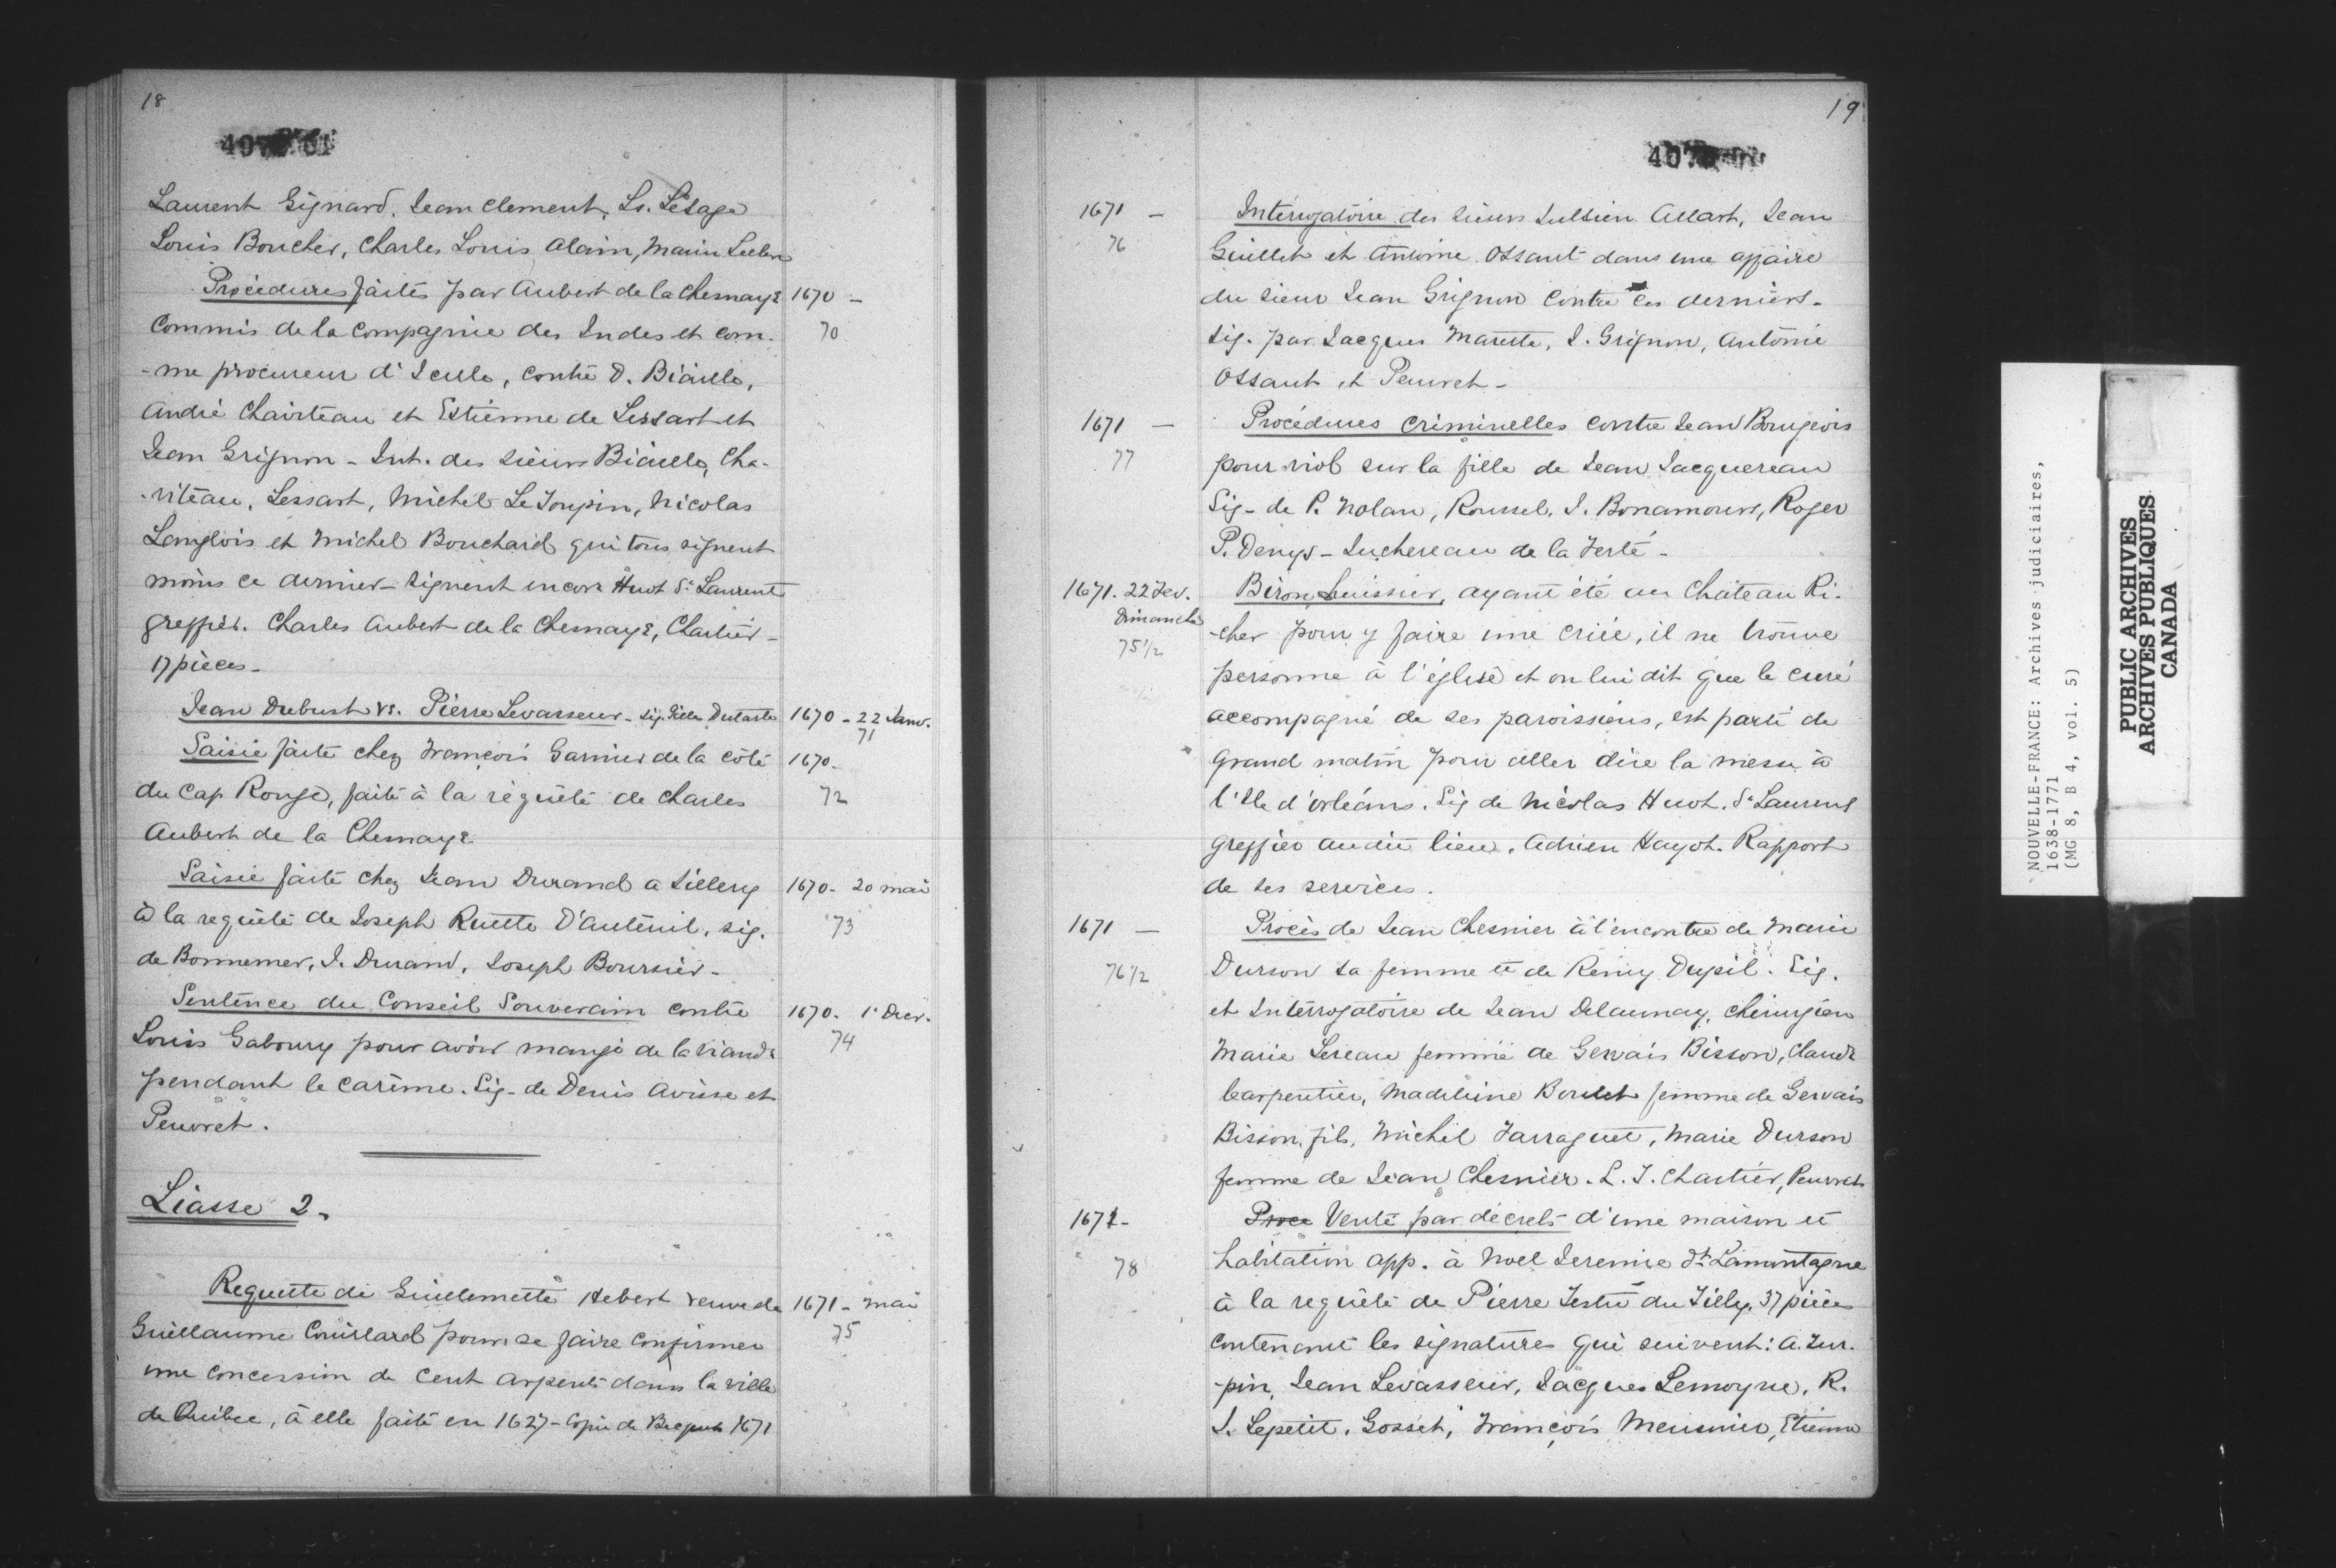 18
Laurent Gignard. Jean Clement, Ls. Lesage
Louis Boucher, Charles Louis Alain, Marin
Procédures faites par Aubert de la Chesnaye 1670 -
Commis de la Compagnie des Indes et com- 70
-me procureur d'icelle, contre D. Biaille,
André Chaviteau et Estienne de Lessart et
Jean Grignon - Int. des sieurs Biaille, Cha-
-viteau, Lessart, Michel Le Toupin, Nicolas
Langlois et Michel Bouchard qui tous signent
moins ce dernier - signent encore Huot St Laurent
greffier. Charles Aubert de la Chesnaye, Chartier -
17 pièces -
Jean Dubust vs. Pierre Levasseur - sig. Gilles Dutarte 1670 - 22 Janv.
71
Saisie faite chez François Garnier de la côte 1670 -
du Cap Rouge, faite à la requête de Charles 72
Aubert de la Chesnaye.
Saisie faite chez Jean Durand a Sillery 1670 - 20 mai
à la requête de Joseph Ruette D'auteuil, sig. 73
de Bonnemer, J. Durand, Joseph Boursier -
Sentence du Conseil Souverain contre 1670. 1r Decr.
Louis Gaboury pour avoir mangé de la viande 74
pendant le carême. Sig - de Denis Avisse et
Peuvret.
Liasse 2.
Requette de Guillemette Hebert veuve de 1671 - mai
Guillaume Couillard pour se faire confirmer 75
une concession de cent arpents dans la ville
de Québec, à elle faite en 1627 - Copie de Becquet 1671
19
1671 - Interrogatoire des sieurs Jullien Allart, Jean
76 Guillet et Antoine Ossant dans une affaire
du sieur Jean Grignon contre ces derniers -
sig. par Jacques Marette, J. Grignon, Antoine
Ossant et Peuvret -
1671 - Procédures criminelles contre Jean Bourgeois
77 pour viol sur la fille de Jean Jacquereau
Sig - de P. Nolan, Roussel, J. Bonamour, Roger
P. Denys - Juchereau de la Ferté -
1671. 22 Fev. Biron, huissier, ayant été au Chateau Ri-
Dimanche -cher pour y faire une criée, il ne trouve
75 1/2 personne à l'église et on lui dit que le curé
accompagné de ses paroissiens, est parti de
grand matin pour aller dire la messe à
l'Ile d'orléans. Sig de Nicolas Huot. St Laurent
greffier audit lieu. Adrien Hayot. Rapport
de ses services.
1671 - Procès de Jean Chesnier à l'encontre de Marie
76 1/2 Durson sa femme et de Remy Dupil. Sig.
et Interrogatoire de Jean Delaunay, chirurgien
Marie Lereau femme de Gervais Bisson, Claude
Carpentier, Madeleine Boutet femme de Gervais
Bisson, fils, Michel Jarraguet, Marie Durson
femme de Jean Chesnier. L. T. Chartier, Peuvret
1671 - Proce Vente par décrets d'une maison et
78 habitation app. à Noel Jeremie dt Lamontagne
à la requête de Pierre Testu du Tilly. 37 pièces
contenant les signatures qui suivent: A. Tur-
-pin, Jean Levasseur, Jacques Lemoyne, R.
J. Lepetit, Gosset, François Meusnier, Etienne
NOUVELLE-FRANCE: Archives judiciaires,
1638-1771
(MG 8, B 4, vol. 5)
PUBLIC ARCHIVES
ARCHIVES PUBLIQUES
CANADA